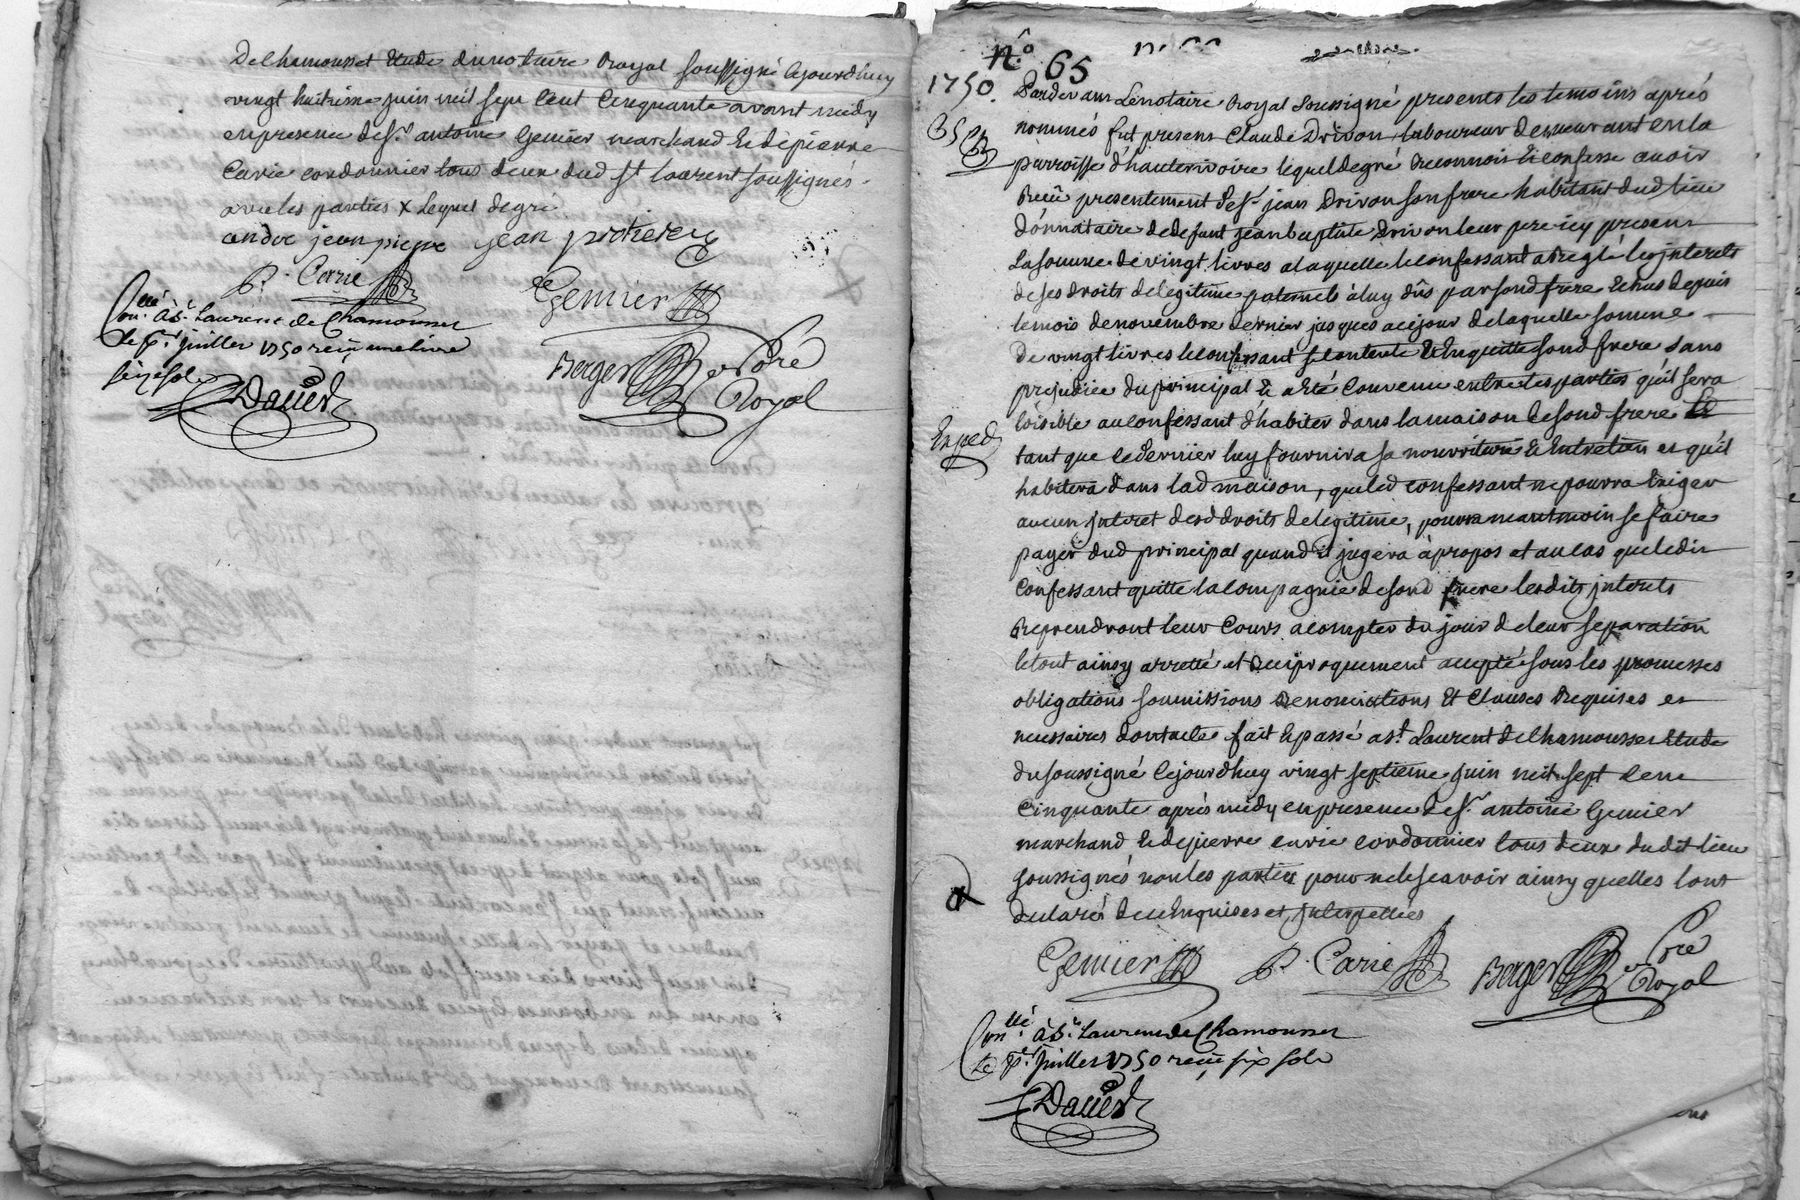 De Chamousset Etude du notaire Royal soussigné cejourdhuy
vingt huitieme juin mil sept cent cinquante avant midy
en presence de Sr. antoine Gemier marchand & de pierre
Carie cordonnier tous deux dud st laurent soussignés
avec les parties x lequel de gré
andre jean pierre jean protiere
P. Carie
Gemier
Con.llé à St. Laurent de Chamousset
le p.er juillet 1750 reçu une livre
seize sols
Berger no.re Royal
Dauer
n.o 65
1750.
Pardevant Le notaire Royal soussigné presents les temoins aprés
nommés fut present Claude Drivon laboureur demeurant en la
parroisse d'hauterivoire lequel de gré reconnois & confesse avoir
Reçu presentement de Sr. jean Drivon son frere habitant dud lieu
donnataire de defunt jean baptiste Drivon leur pere icy present
La somme de vingt livres a laquelle le confessant a reglé les interets
de ses droits de legitime paternels à luy dûs par sond frere Echus depuis
le mois de novembre dernier jusques a cejour de laquelle somme
de vingt livres le confessant se contente & En quitte sond frere sans
prejudice du principal & a eté Convenu entre les parties qu'il sera
loisible au confessant d'habiter dans la maison de sond frere
Exped
tant que ce dernier luy fournira sa nourriture & Entretien et qu'il
habitera dans lad maison, que led confessant ne pourra Exiger
aucun interet desd droits de legitime, pourra neantmoin se faire
payer dud principal quand il jugera à propos et au cas que ledit
Confessant quitte la compagnie de sond frere lesdits interets
Reprendront leur Cours a compter du jour de leur separation
le tout ainsy arretté et Reciproquement accepté sous les promesses
obligations soumissions Renonciations Et Clauses Requises et
necessaires dont acte fait & passé a st. Laurent de Chamousset Etude
du soussigné cejourdhuy vingt septieme juin mil sept cent
Cinquante aprés midy en presence de Sr. antoine Gemier
marchand & de pierre carie cordonnier tous deux du dit lieu
soussignés non les parties pour ne le scavoir ainsy quelles l'ont
declarés de ce Enquises et interpellées
Gemier P. Carie Berger no.re Royal
Con.llé à St. Laurent de Chamousset
Le p.er juillet 1750 reçu six sols
Dauer